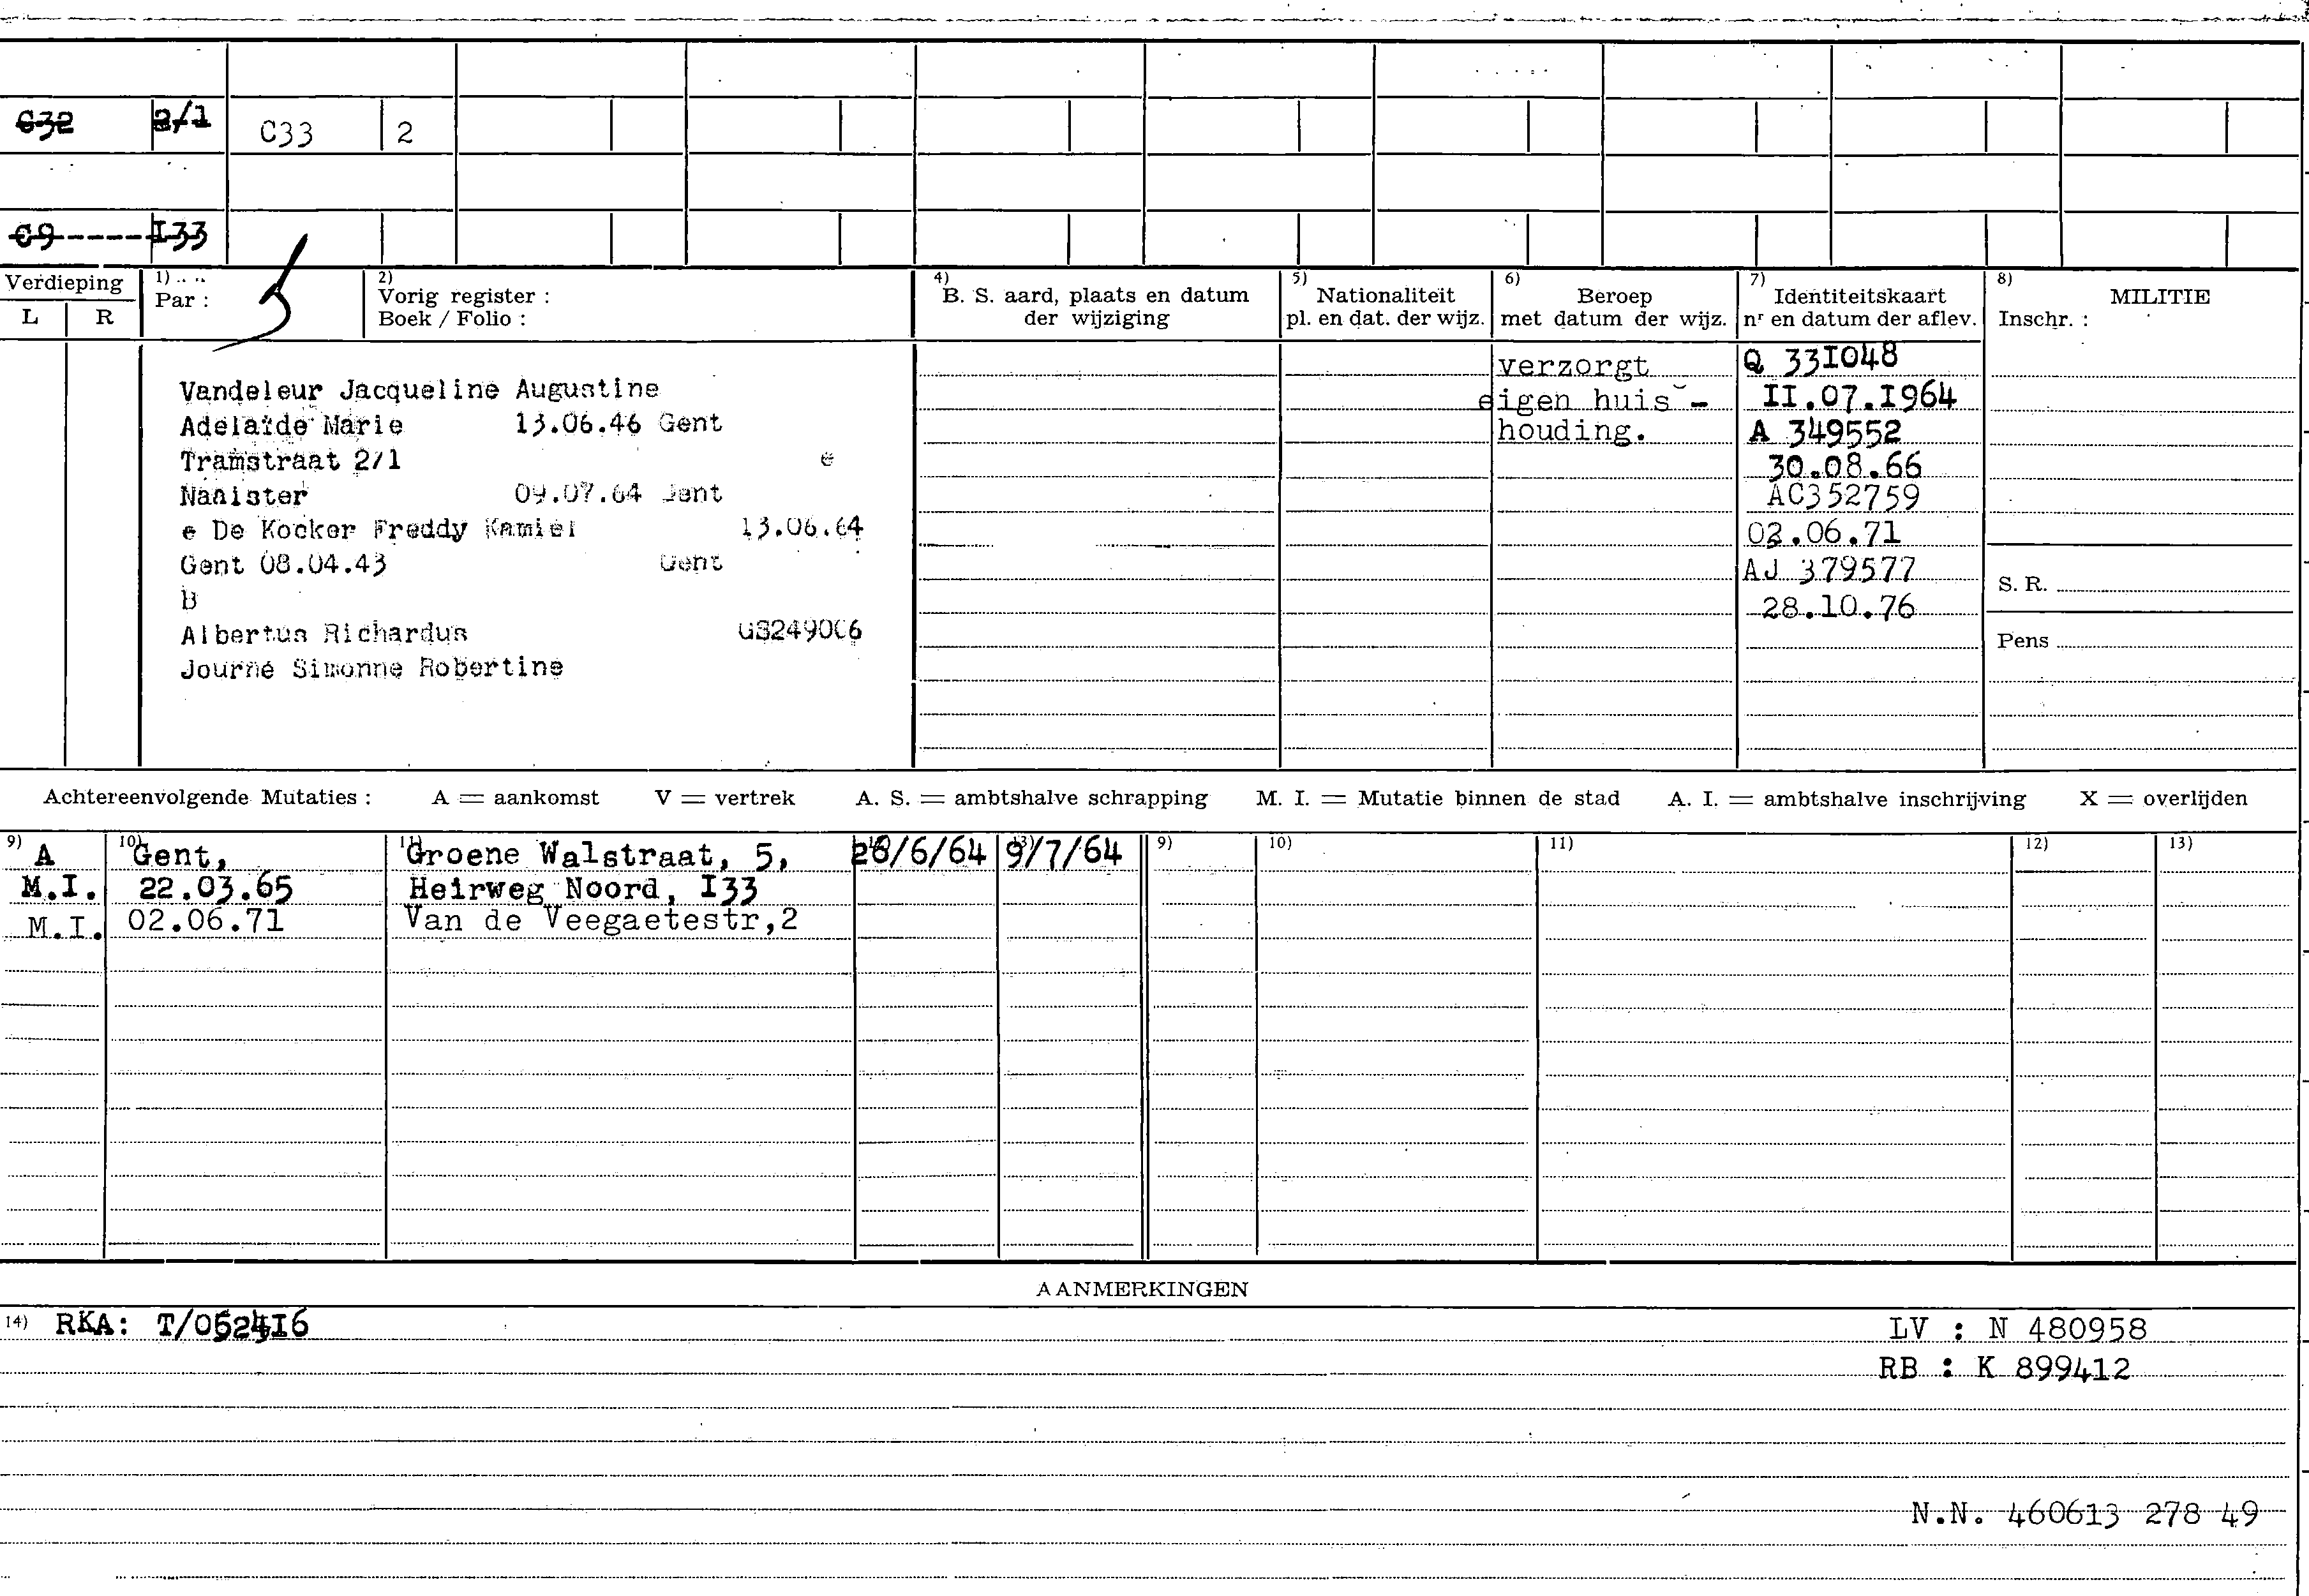 C32 2/1 C33 2
C9-----I33
Verdieping
L R
1)
Par :
2)
Vorig register :
Boek / Folio :
4)
B. S. aard, plaats en datum
der wijziging
5)
Nationaliteit
pl. en dat. der wijz.
6)
Beroep
met datum der wijz.
7)
Identiteitskaart
nr en datum der aflev.
8)
MILITIE
Inschr. :
Vandeleur Jacqueline Augustine
Adelaïde Marie 13.06.46 Gent
Tramstraat 2/1 e
09.07.64 Gent
e De Kocker Freddy Kamiel 13.06.64
Gent 08.04.43 Gent
b
Albertus Richardus
Journé Simonne Robertine
verzorgt
eigen huis -
houding.
Q 33I048
II.07.I964
A 349552
30.08.66
AC352759
02.06.71
AJ 379577
28.10.76
S. R.
Pens
Achtereenvolgende Mutaties : A = aankomst V = vertrek A. S. = ambtshalve schrapping M. I. = Mutatie binnen de stad A. I. = ambtshalve inschrijving X = overlijden
9) 10) 11) 13) 9) 10) 11) 12) 13)
A Gent, Groene Walstraat, 5, 26/6/64 9/7/64
M.I. 22.03.65 Heirweg Noord, I33
M.I. 02.06.71 Van de Veegaetestr,2
AANMERKINGEN
14) RKA: T/0524I6 LV : N 480958
RB : K 899412
N.N. 460613 278 49